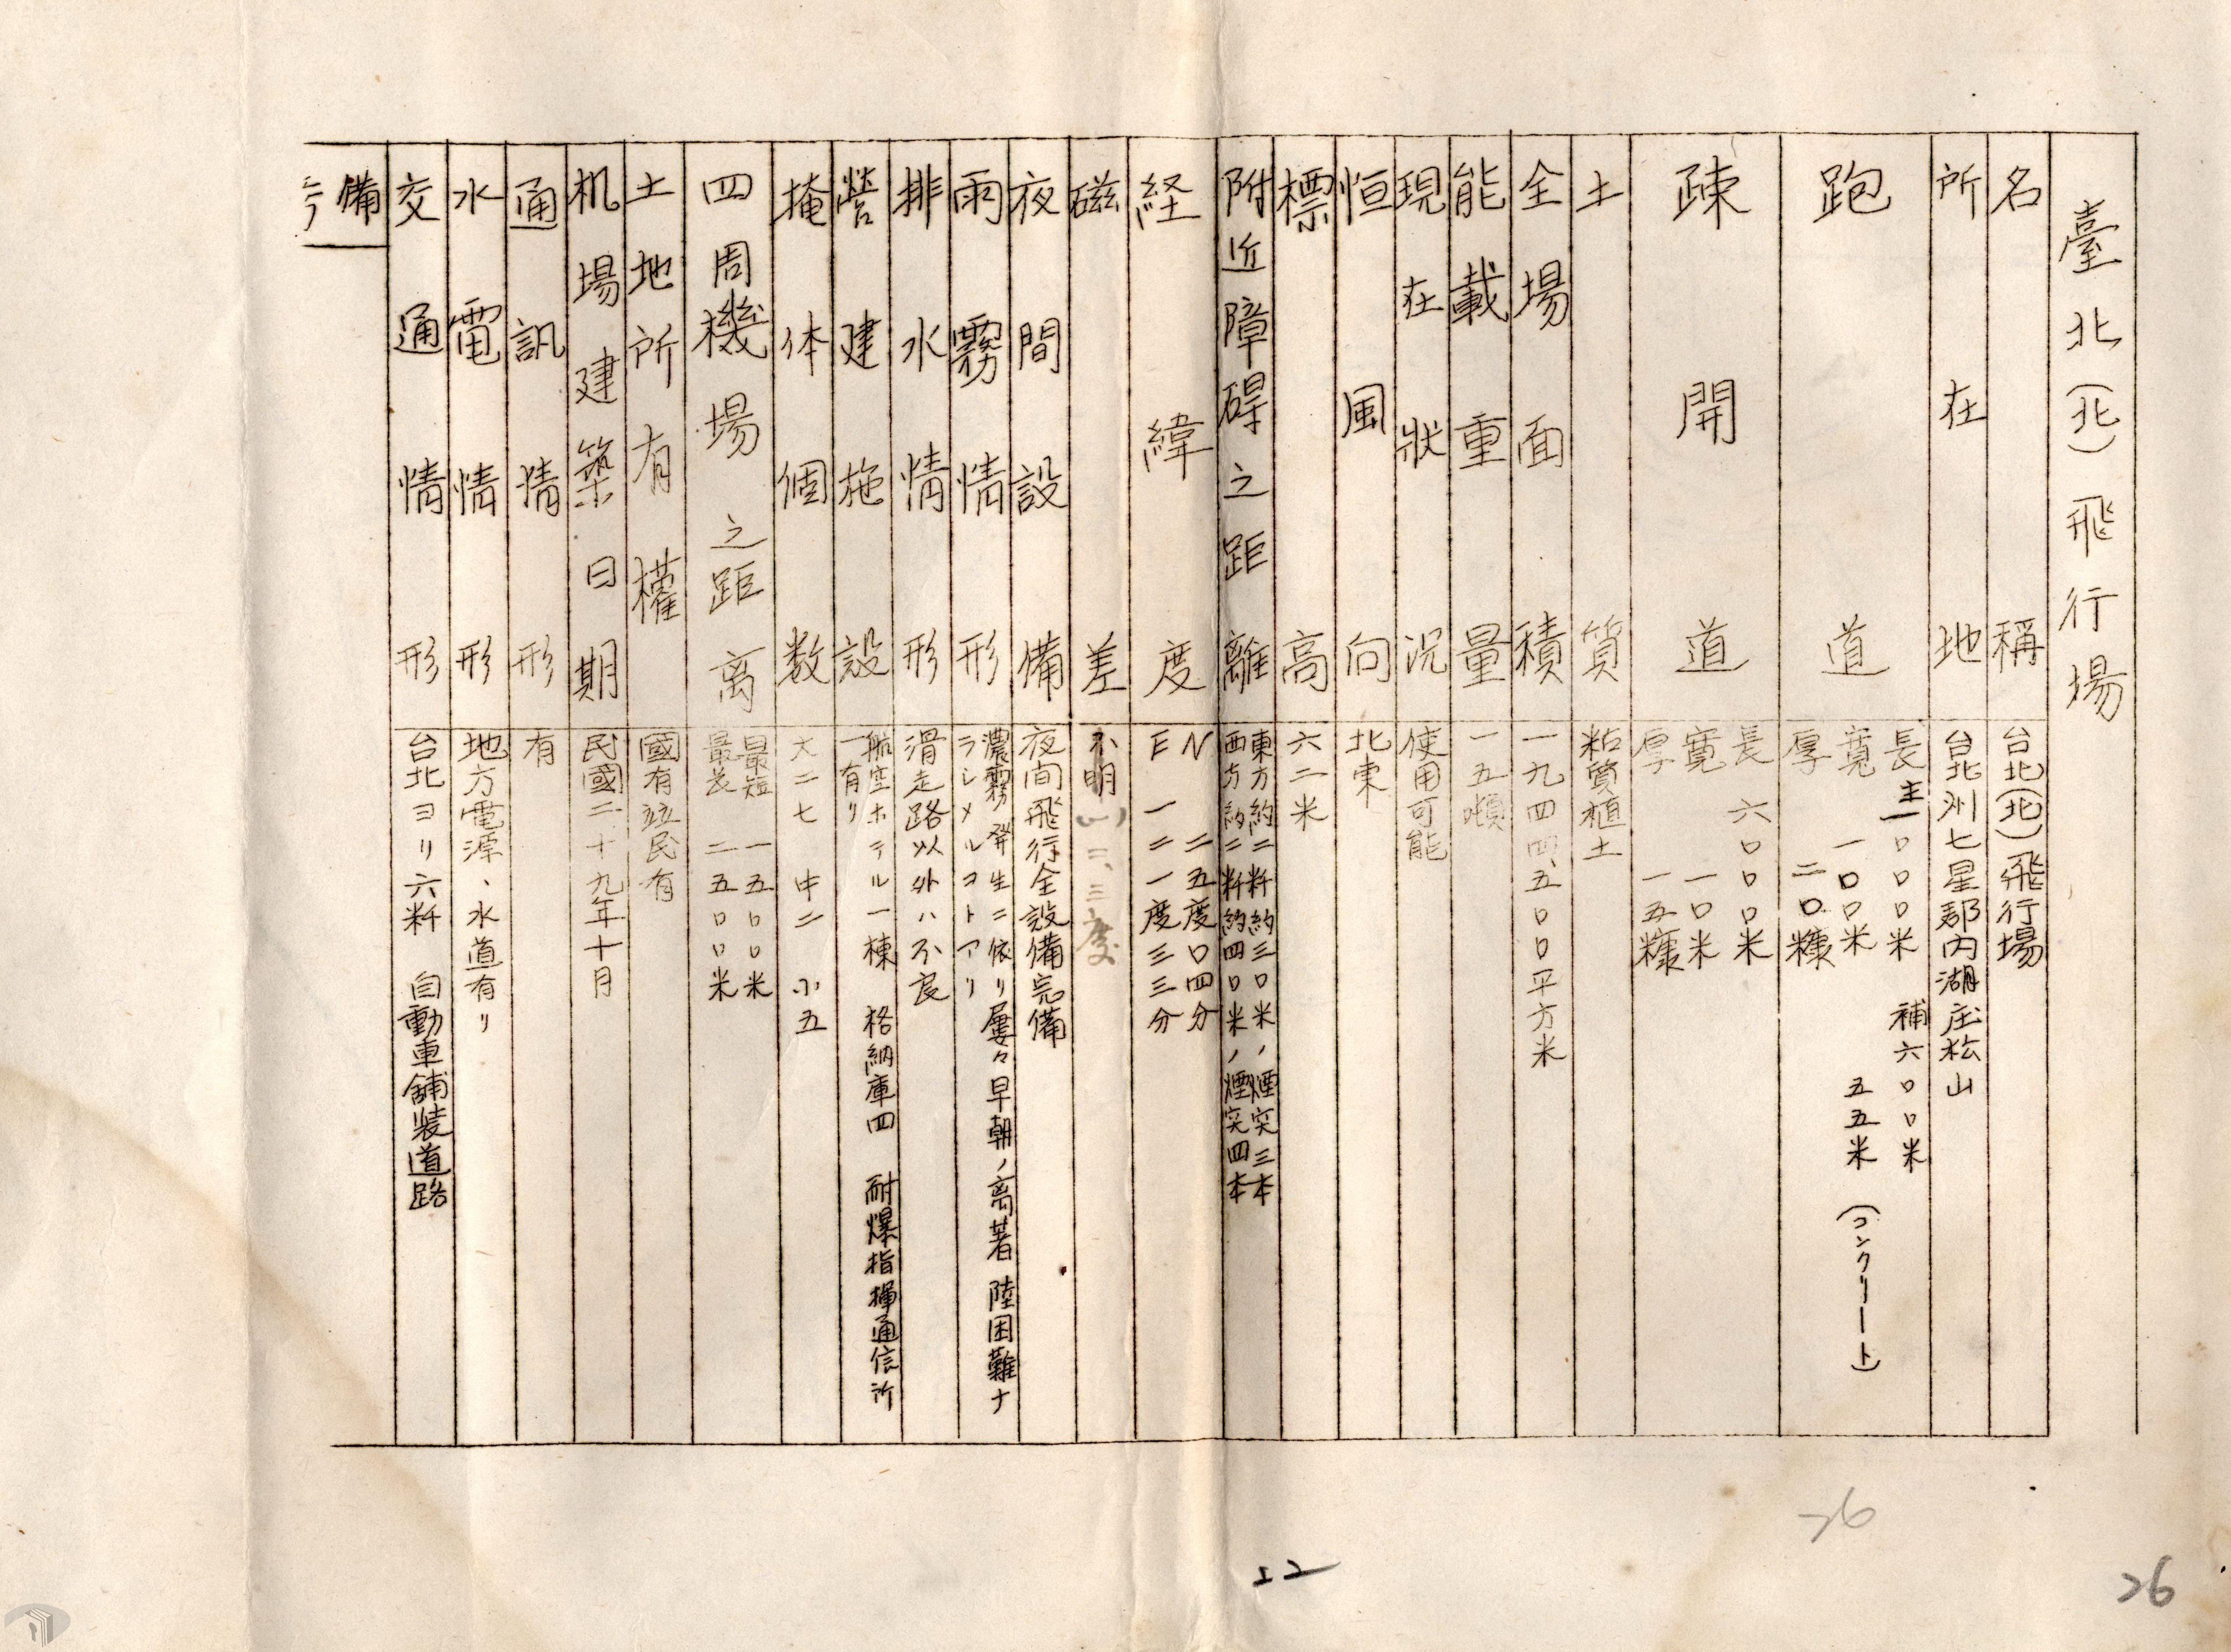 臺北(北)飛行場
名稱 台北(北)飛行場
所在地 台北州七星郡内湖庄松山
跑道
長 主一〇〇〇米 補六〇〇米
寬 一〇〇米 五五米 (コンクリート)
厚 二〇糎
疎開道
長 六〇〇〇米
寬 一〇米
厚 一五糎
土質 粘質植土
全場面積 一九四四、五〇〇平方米
能載重量 一五噸
現在狀況 使用可能
恒風向 北東
標高 六二米
附近障碍之距離
東方約二粁約三〇米ノ煙突三本
西方約二粁約四〇米ノ煙突四本
経緯度
N 二五度〇四分
E 一二一度三三分
磁差 不明 (一)二、三度
夜間設備 夜间飛行全設備完備
雨霧情形
濃霧発生ニ依リ屢々早朝ノ离着陸困難ナ
ラシメルコトアリ
排水情形 滑走路以外ハ不良
營建施設
航空ホテル一棟 格納庫四 耐爆指揮通信所
一有リ
掩体個数 大二七 中二 小五
四周機場之距离
最短 一五〇〇米
最长 二五〇〇米
土地所有權 國有並民有
机場建築日期 民國二十九年十月
通訊情形 有
水電情形 地方電源、水道有リ
交通情形 台北ヨリ六粁 自動車舗装道路
備考
22
26
26